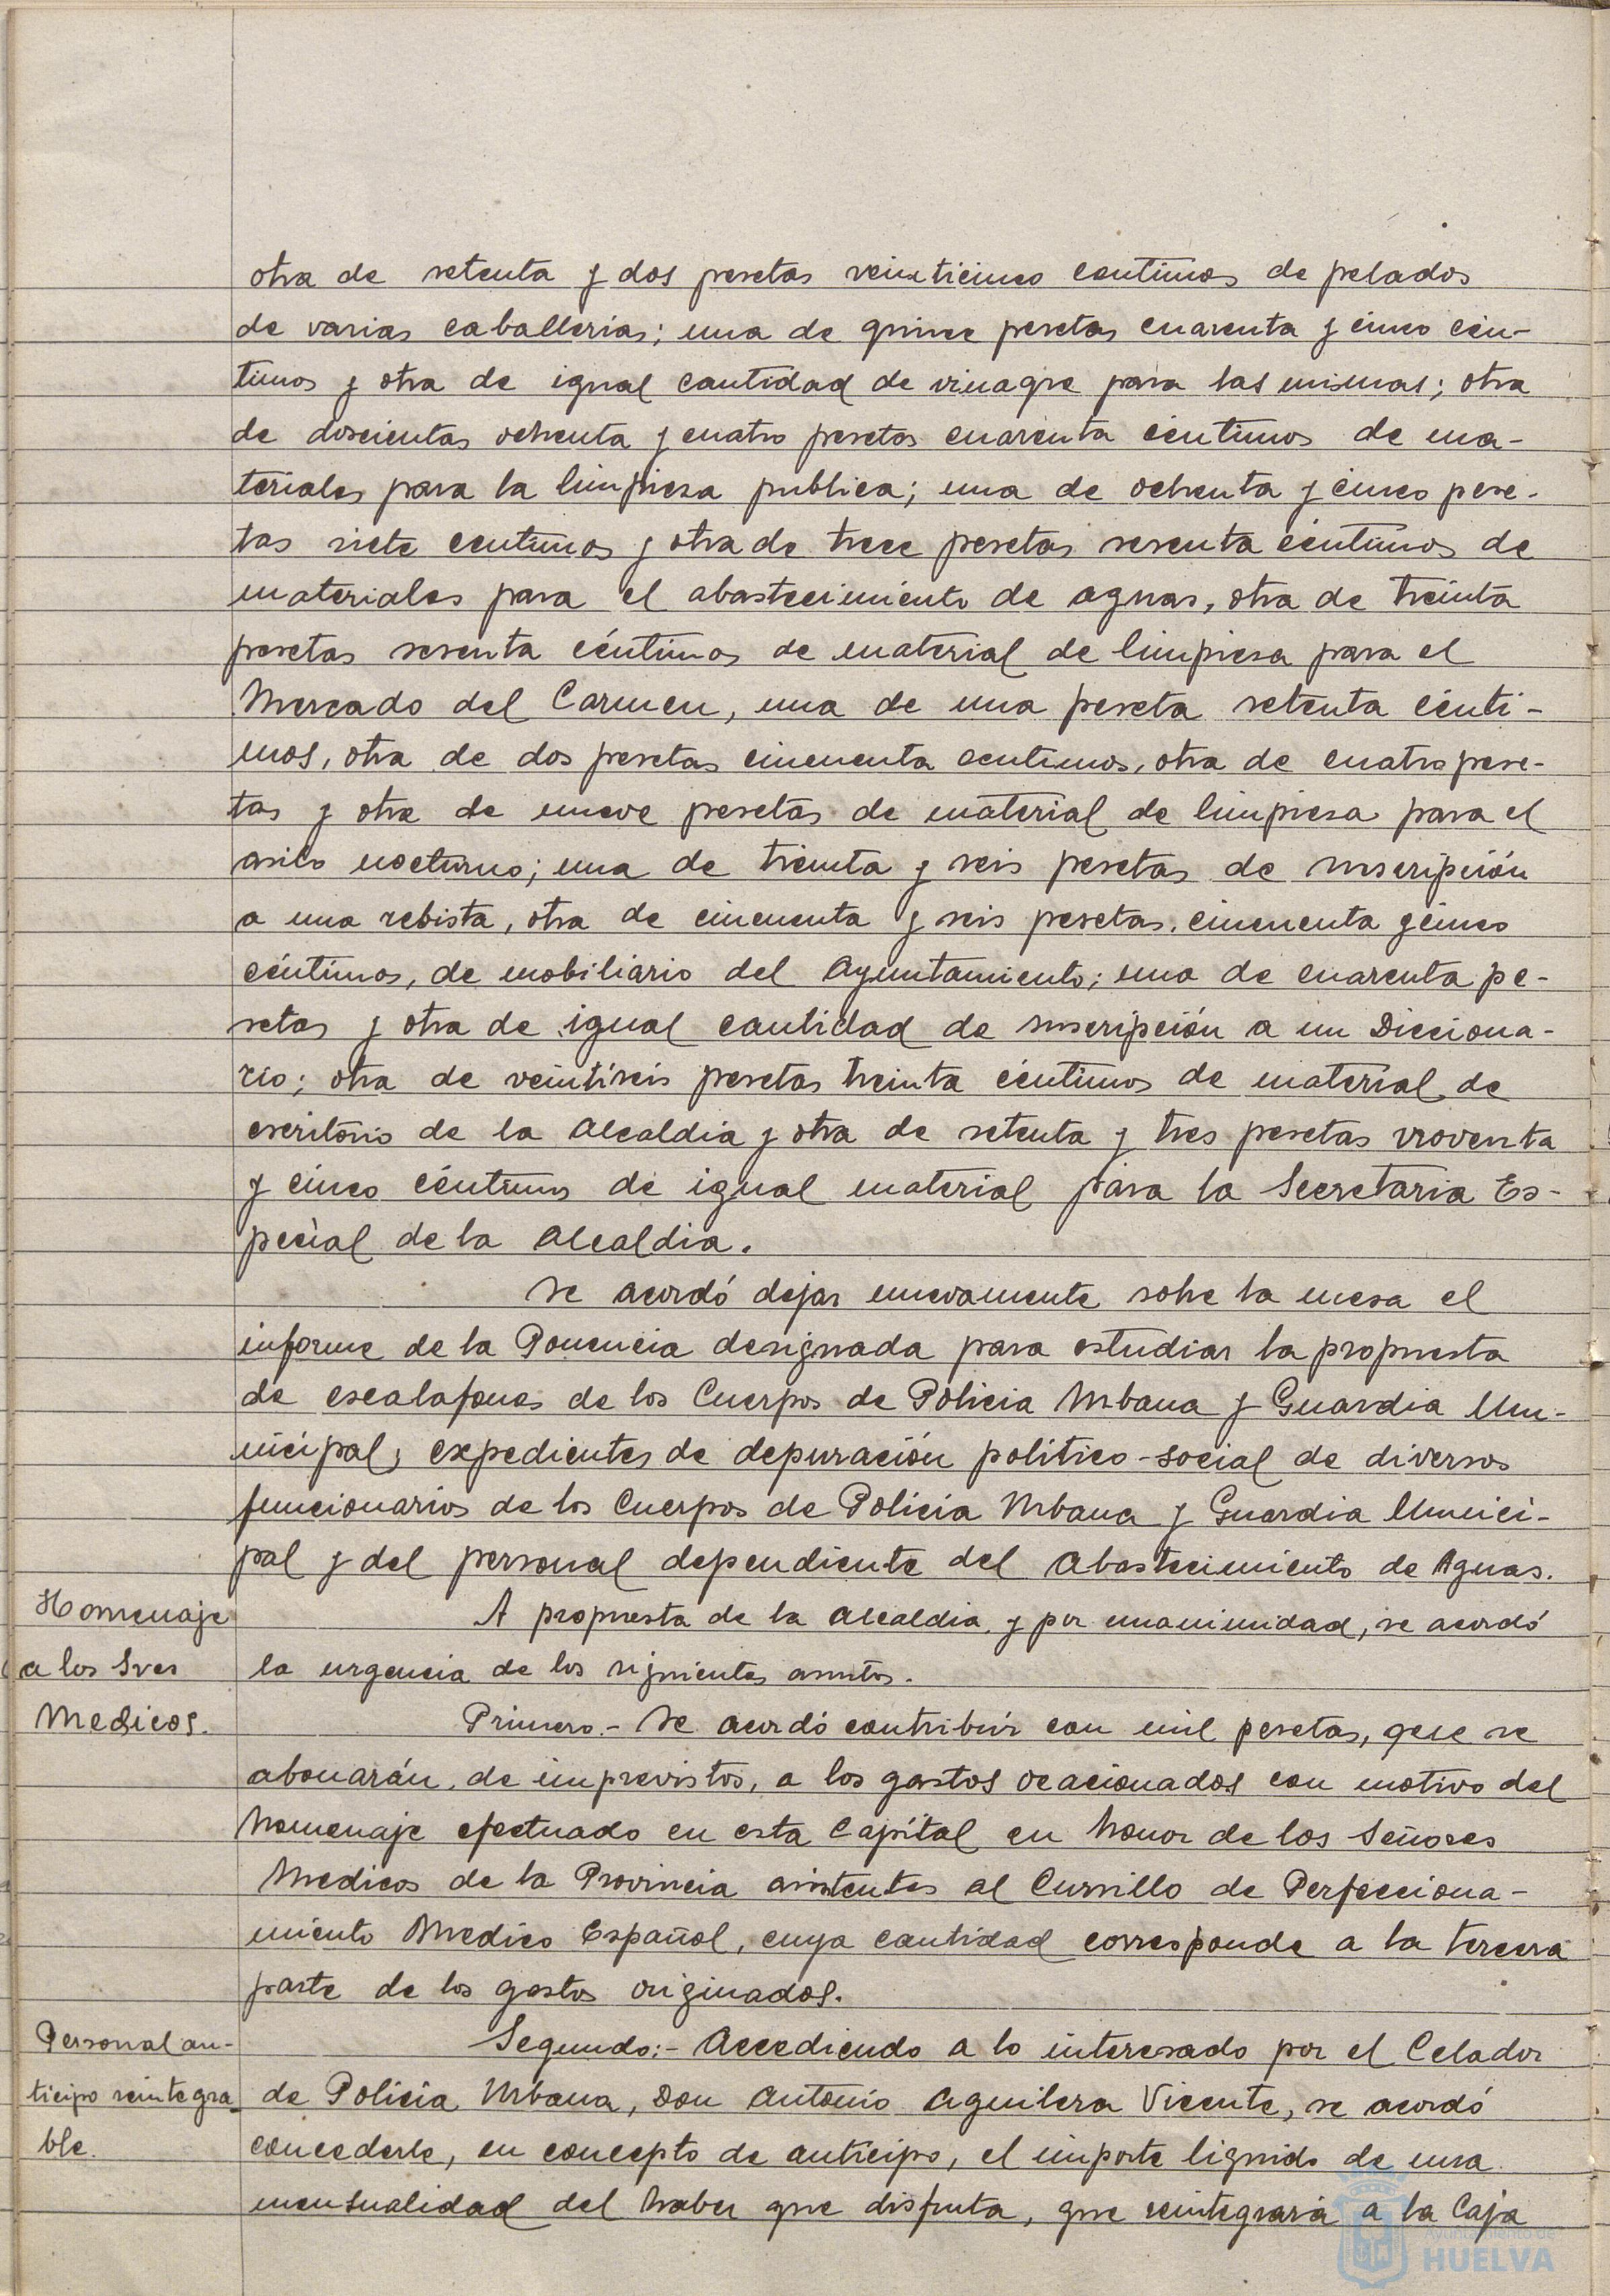 otra de setenta y dos pesetas veinticinco centimos de pelados
de varias caballerias; una de quince pesetas cuarenta y cinco cén-
timos y otra de igual cantidad de vinagre para las mismas; otra
de doscientas ochenta y cuatro pesetas cuarenta céntimos de ma-
teriales para la limpiesa publica; una de ochenta y cinco pese-
tas siete centimos y otra de trece pesetas sesenta céntimos de
materiales para el abastecimiento de aguas, otra de treinta
pesetas sesenta céntimos de material de limpiesa para el
Mercado del Carmen, una de una peseta setenta cénti-
mos, otra de dos pesetas cincuenta centimos, otra de cuatro pese-
tas y otra de nueve pesetas de material de limpiesa para el
asilo nocturno; una de treinta y seis pesetas de suscripción
a una rebista, otra de cincuenta y seis pesetas, cincuenta y cinco
céntimos, de mobiliario del Ayuntamiento; una de cuarenta pe-
setas y otra de igual cantidad de suscripción a un Dicciona-
rio; otra de veintiseis pesetas treinta céntimos de material de
escritorio de la Alcaldia y otra de setenta y tres pesetas noventa
y cinco céntimos de igual material para la Secretaria Es-
pecial de la Alcaldia.
Se acordó dejar nuevamente sobre la mesa el
informe de la Ponencia designada para estudiar la propuesta
de escalafones de los Cuerpos de Policia Urbana y Guardia Mu-
nicipal, expedientes de depuración politico-social de diversos
funcionarios de los Cuerpos de Policia Urbana y Guardia Munici-
pal y del personal dependiente del Abastecimiento de Aguas.
Homenaje
a los Sres
Medicos.
A propuesta de la Alcaldia, y por unanimidad, se acordó
la urgencia de los siguientes asuntos.
Primero.- Se acordó contribuir con mil pesetas, que se
abonarán, de imprevistos, a los gastos ocacionados con motivo del
homenaje efectuado en esta Capital en honor de los Señores
Medicos de la Provincia asistentes al Cursillo de Perfecciona-
miento Medico Español, cuya cantidad corresponde a la tercera
parte de los gastos originados.
Personal an-
ticipo reintegra-
ble.
Segundo:- Accediendo a lo interesado por el Celador
de Policia Urbana, Don Antonio Aguilera Vicente, se acordó
concederle, en concepto de anticipo, el importe liquido de una
mensualidad del haber que disfruta, que reintegrará a la Caja
HUELVA